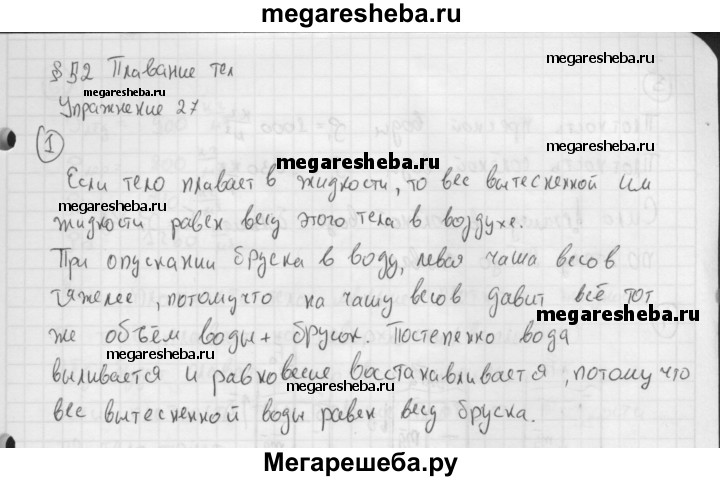 megaresheba.ru
§ 52 Плавание тел
megaresheba.ru
Упражнение 27
1
megaresheba.ru
Если тело плавает в жидкости, то вес вытесненной им
жидкости равен весу этого тела в воздухе.
megaresheba.ru
При опускании бруска в воду, левая чаша весов
тяжелее, потому что на чашу весов давит всё тот
megaresheba.ru
же объём воды + брусок. Постепенно вода
megaresheba.ru
выливается и равновесие восстанавливается, потому что
megaresheba.ru
вес вытесненной воды равен весу бруска.
Мегарешеба.ру